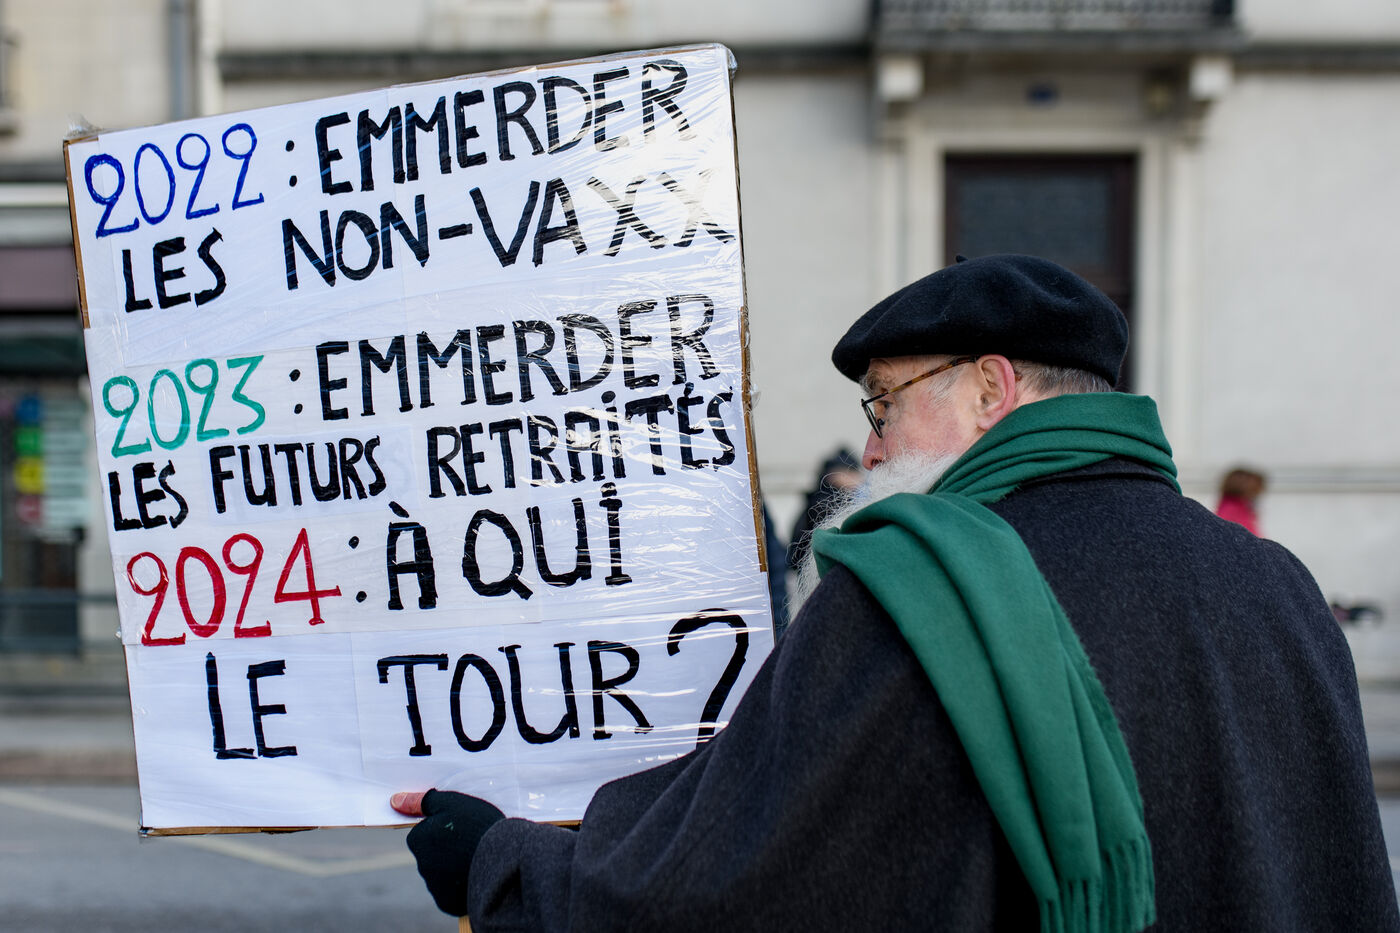 2022 : EMMERDER
LES NON-VAXX
2023 : EMMERDER
LES FUTURS RETRAITÉS
2024 : À QUI
LE TOUR ?